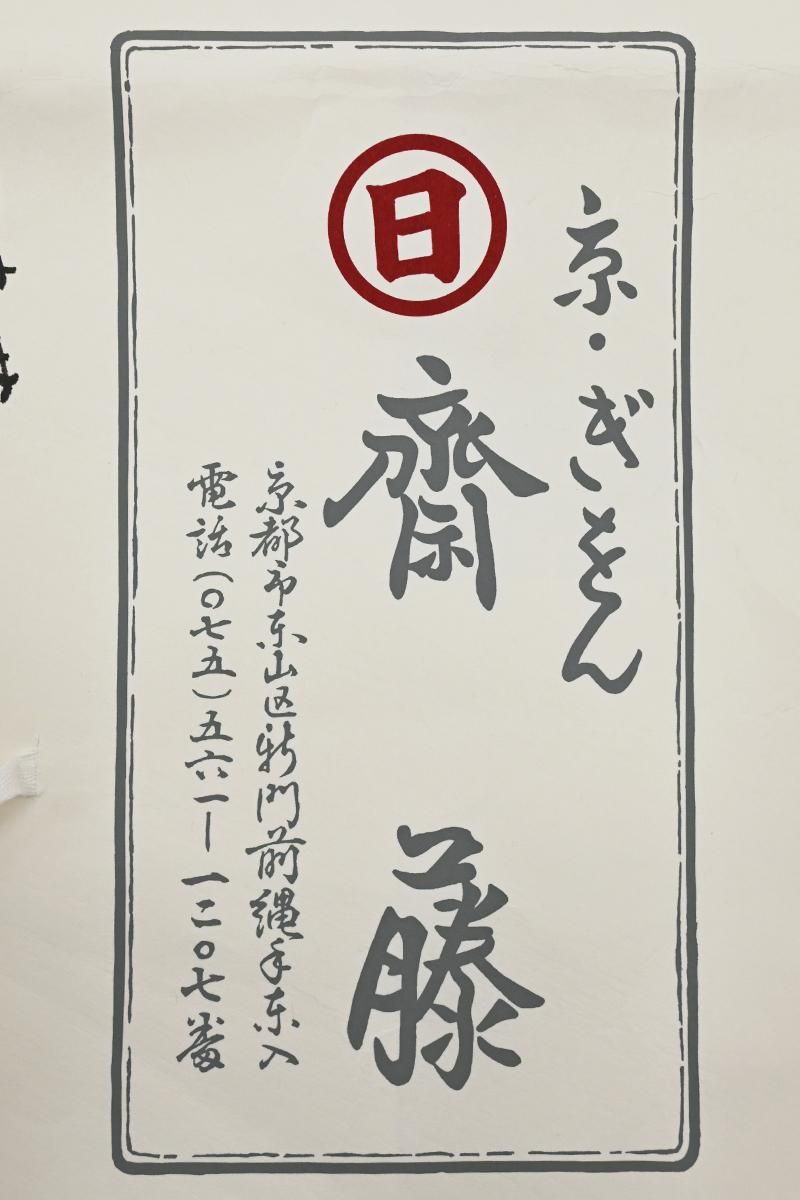 京・ぎをん
日
齋藤
京都市东山区新門前縄手东入
電話(〇七五)五六一―一二〇七番